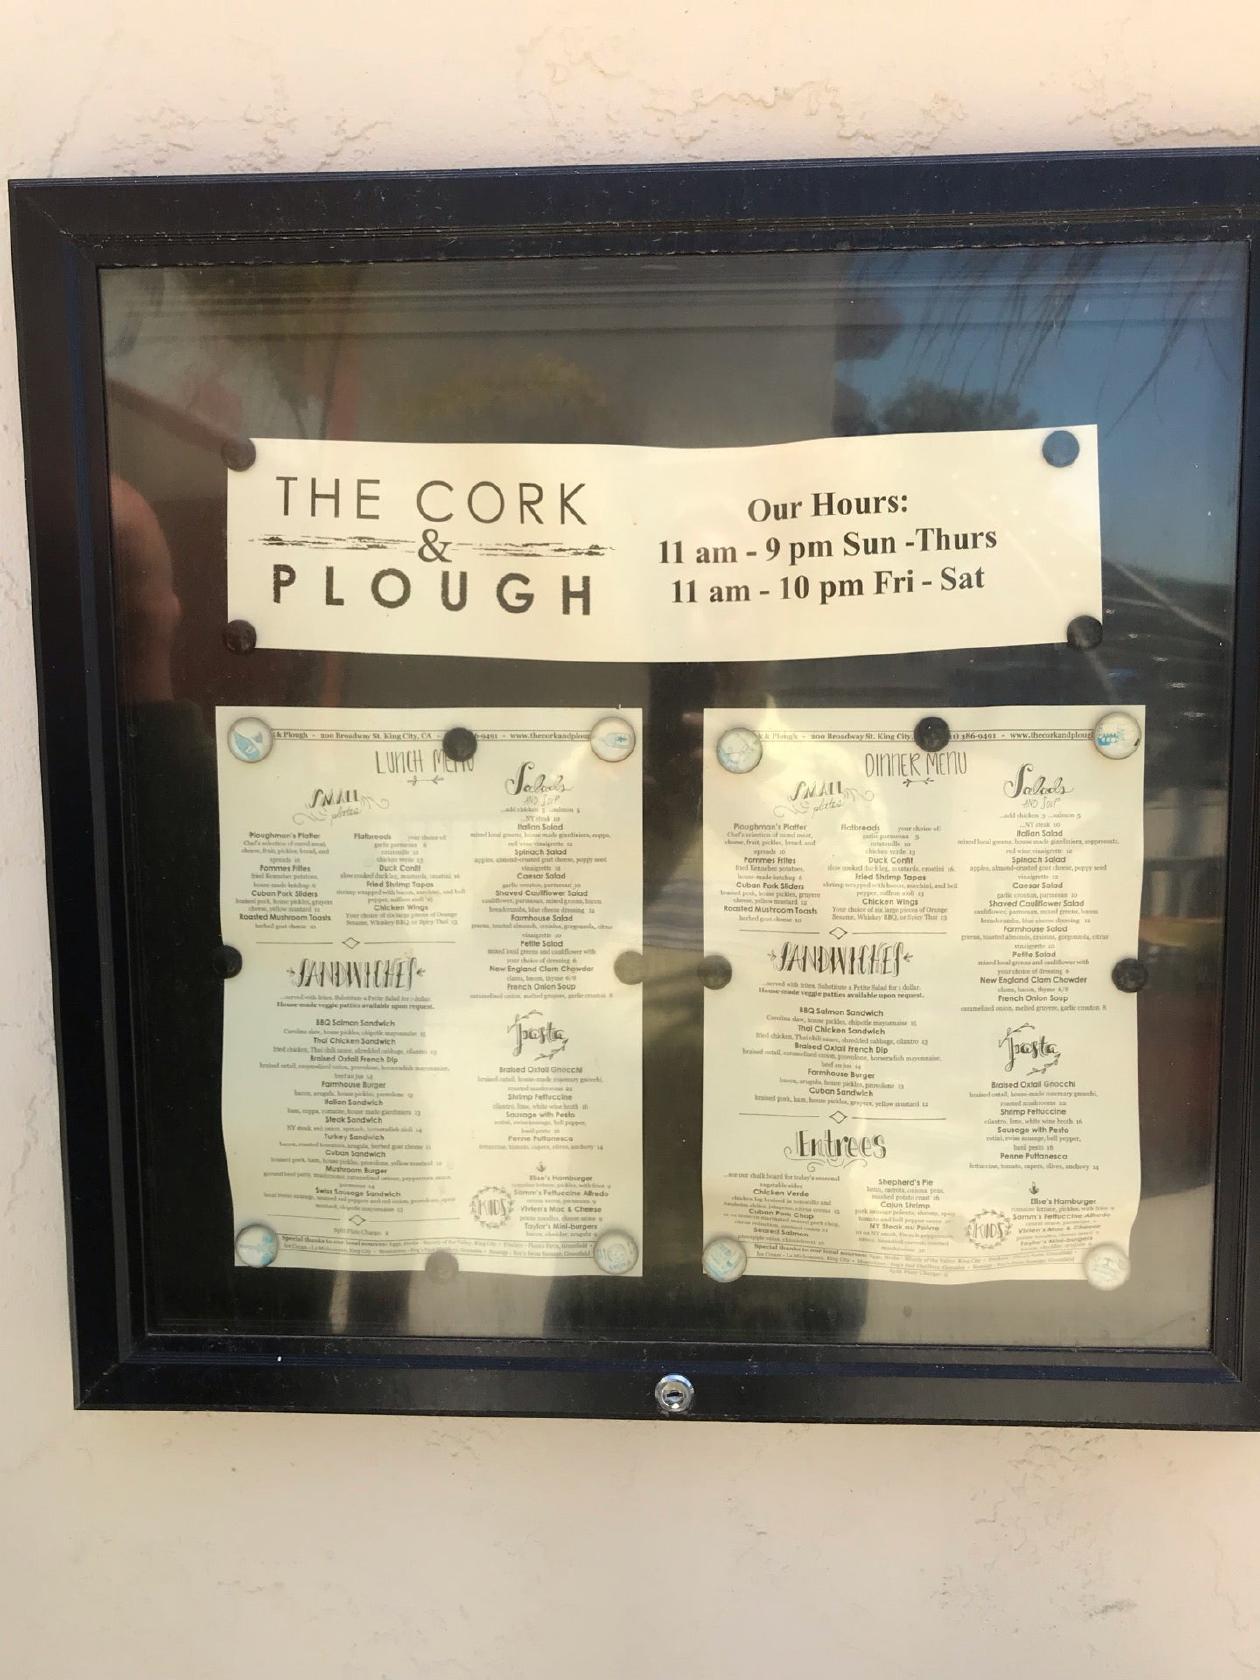 THE CORK
&
PLOUGH
Our Hours:
11 am - 9 pm Sun -Thurs
11 am - 10 pm Fri - Sat
& Plough - 200 Broadway St. King City, CA
LUNCH MENU
SMALL
plates
Ploughman's Platter
Chef's selection of cured meat,
cheese, fruit, pickles, bread, and
spreads 16
Pommes Frites
fried Kennebec potatoes,
house-made ketchup 6
Cuban Pork Sliders
braised pork, house pickles, gruyere
cheese, yellow mustard 12
Roasted Mushroom Toasts
herbed goat cheese 10
Flatbreads your choice of:
garlic parmesan 6
ratatouille 12
chicken verde 13
Duck Confit
slow cooked duck leg, mustards, crostini 16
Fried Shrimp Tapas
shrimp wrapped with bacon, zucchini, and bell
Chicken Wings
Your choice of six large pieces of Orange
Sesame, Whiskey BBQ, or Spicy Thai 13
Salads
AND SOUP
...add chicken 3 ...salmon 5
...NY steak 10
Italian Salad
red wine vinaigrette 12
Spinach Salad
apples, almond-crusted goat cheese, poppy seed
vinaigrette 12
Caesar Salad
garlic crouton, parmesan 10
Shaved Cauliflower Salad
cauliflower, parmesan, mixed greens, bacon
breadcrumbs, blue cheese dressing 12
Farmhouse Salad
vinaigrette 10
Petite Salad
mixed local greens and cauliflower with
your choice of dressing 6
New England Clam Chowder
clams, bacon, thyme 6/8
French Onion Soup
caramelized onion, melted gruyere, garlic crouton 8
SANDWICHES
...served with frites. Substitute a Petite Salad for 1 dollar.
House-made veggie patties available upon request.
BBQ Salmon Sandwich
Carolina slaw, house pickles, chipotle mayonnaise 15
Thai Chicken Sandwich
fried chicken, Thai chili sauce, shredded cabbage, cilantro 13
Braised Oxtail French Dip
braised oxtail, caramelized onion, provolone, horseradish mayonnaise,
beef au jus 14
Farmhouse Burger
bacon, arugula, house pickles, provolone 13
Italian Sandwich
Steak Sandwich
NY steak, red onion, spinach, horseradish aioli 14
Turkey Sandwich
Cuban Sandwich
Mushroom Burger
Swiss Sausage Sandwich
Pasta
Braised Oxtail Gnocchi
braised oxtail, house-made rosemary gnocchi,
roasted mushrooms 22
Shrimp Fettuccine
cilantro, lime, white wine broth 16
Sausage with Pesto
Penne Puttanesca
KIDS
Elise's Hamburger
Samm's Fettuccine Alfredo
Vivien's Mac & Cheese
Taylor's Mini-burgers
Split Plate Charge
200 Broadway St. King City,
386-9491 - www.thecorkandploug
DINNER MENU
SMALL
plates
Ploughman's Platter
Chef's selection of cured meat,
cheese, fruit, pickles, bread, and
spreads 16
Pommes Frites
fried Kennebec potatoes,
house-made ketchup 6
Cuban Pork Sliders
braised pork, house pickles, gruyere
cheese, yellow mustard 12
Roasted Mushroom Toasts
herbed goat cheese 10
Flatbreads your choice of:
garlic parmesan
ratatouille
chicken verde 13
Duck Confit
slow cooked duck leg, mustards, crostini 16
Fried Shrimp Tapas
shrimp wrapped with bacon, zucchini, and bell
pepper, saffron aioli 13
Chicken Wings
Your choice of six large pieces of Orange
Sesame, Whiskey BBQ, or Spicy Thai 13
Salads
AND SOUP
...add chicken 3 ...salmon 5
...NY steak 10
Italian Salad
red wine vinaigrette 12
Spinach Salad
apples, almond-crusted goat cheese, poppy seed
vinaigrette 12
Caesar Salad
garlic crouton, parmesan 10
Shaved Cauliflower Salad
cauliflower, parmesan, mixed greens, bacon
breadcrumbs, blue cheese dressing 12
Farmhouse Salad
vinaigrette 10
Petite Salad
mixed local greens and cauliflower with
your choice of dressing 6
New England Clam Chowder
clams, bacon, thyme 6/8
French Onion Soup
caramelized onion, melted gruyere, garlic crouton 8
SANDWICHES
...served with frites. Substitute a Petite Salad for 1 dollar.
House-made veggie patties available upon request.
BBQ Salmon Sandwich
Carolina slaw, house pickles, chipotle mayonnaise 15
Thai Chicken Sandwich
fried chicken, Thai chili sauce, shredded cabbage, cilantro 13
Braised Oxtail French Dip
braised oxtail, caramelized onion, provolone, horseradish mayonnaise,
beef au jus 14
Farmhouse Burger
bacon, arugula, house pickles, provolone 13
Cuban Sandwich
braised pork, ham, house pickles, gruyere, yellow mustard 12
Pasta
Braised Oxtail Gnocchi
braised oxtail, house-made rosemary gnocchi,
roasted mushrooms 22
Shrimp Fettuccine
cilantro, lime, white wine broth 16
Sausage with Pesto
rotini, swiss sausage, bell pepper,
basil pesto 18
Penne Puttanesca
fettuccine, tomato, capers, olives, anchovy 14
Entrees
...see our chalk board for today's seasonal
vegetable sides
Chicken Verde
Cuban Pork Chop
Seared Salmon
Shepherd's Pie
Cajun Shrimp
NY Steak au Poivre
KIDS
Elise's Hamburger
Samm's Fettuccine Alfredo
Vivien's Mac & Cheese
Taylor's Mini-burgers
Split Plate Charge